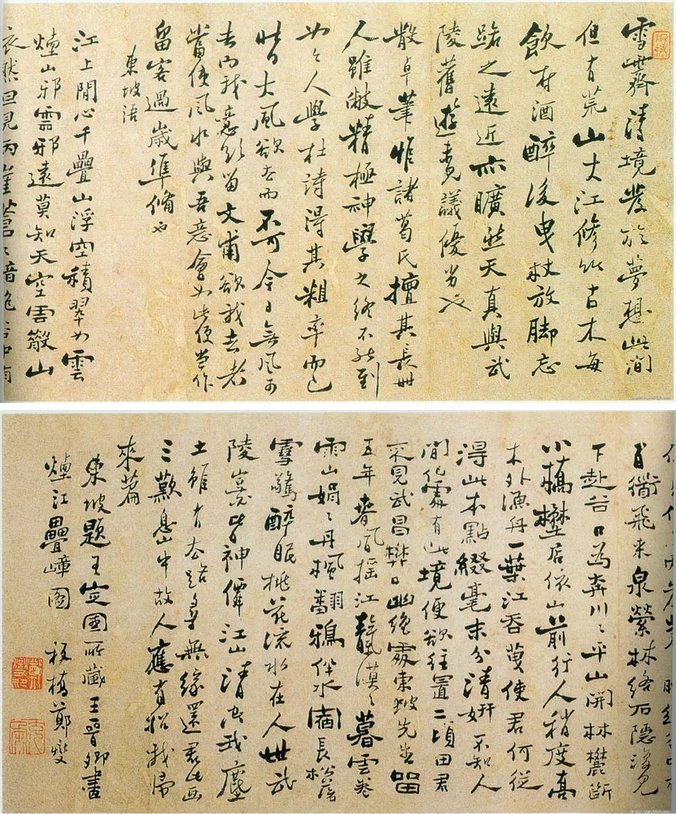 雪霽清境發於夢想此間
但有荒山大江修竹古木每
飲村酒醉後曳杖放脚忘
路之遠近亦曠然天真與武
陵舊遊未易議優劣也
散卓筆惟諸葛氏擅其長世
人雖倣精極神學之終不能到
人學杜詩得其粗率而已
昨日大風欲去而不可今日無風可
去而我意欲留文甫欲我去者
當使風水與吾意會如此便當作
留客過歲準備也
東坡語
江上閒心千疊山浮空積翠如雲
煙山邪雲邪遠莫知天空雲散山
依然但見兩崖蒼〻暗絕谷中有
百衜飛來泉縈林絡石隱復見
下赴谷口為奔川〻平山開林麓斷
小橋野店依山前行人稍度喬
木外漁舟一葉江吞天使君何從
得此本點綴毫末分清妍不知人
間何處有此境便欲往置二頃田君
不見武昌樊口幽絕處東坡先生留
五年春風搖江天漠〻暮雲卷
雨山娟〻丹楓翻鴉伴水宿長松落
雪驚醉眠桃花流水在人世武
陵豈皆神僊江山清空我塵
土雖有去路尋無緣還君此畫
三歎息山中故人應有招我歸
來篇
東坡題王定國所藏王晉卿畫
煙江疊嶂圖 板橋鄭燮